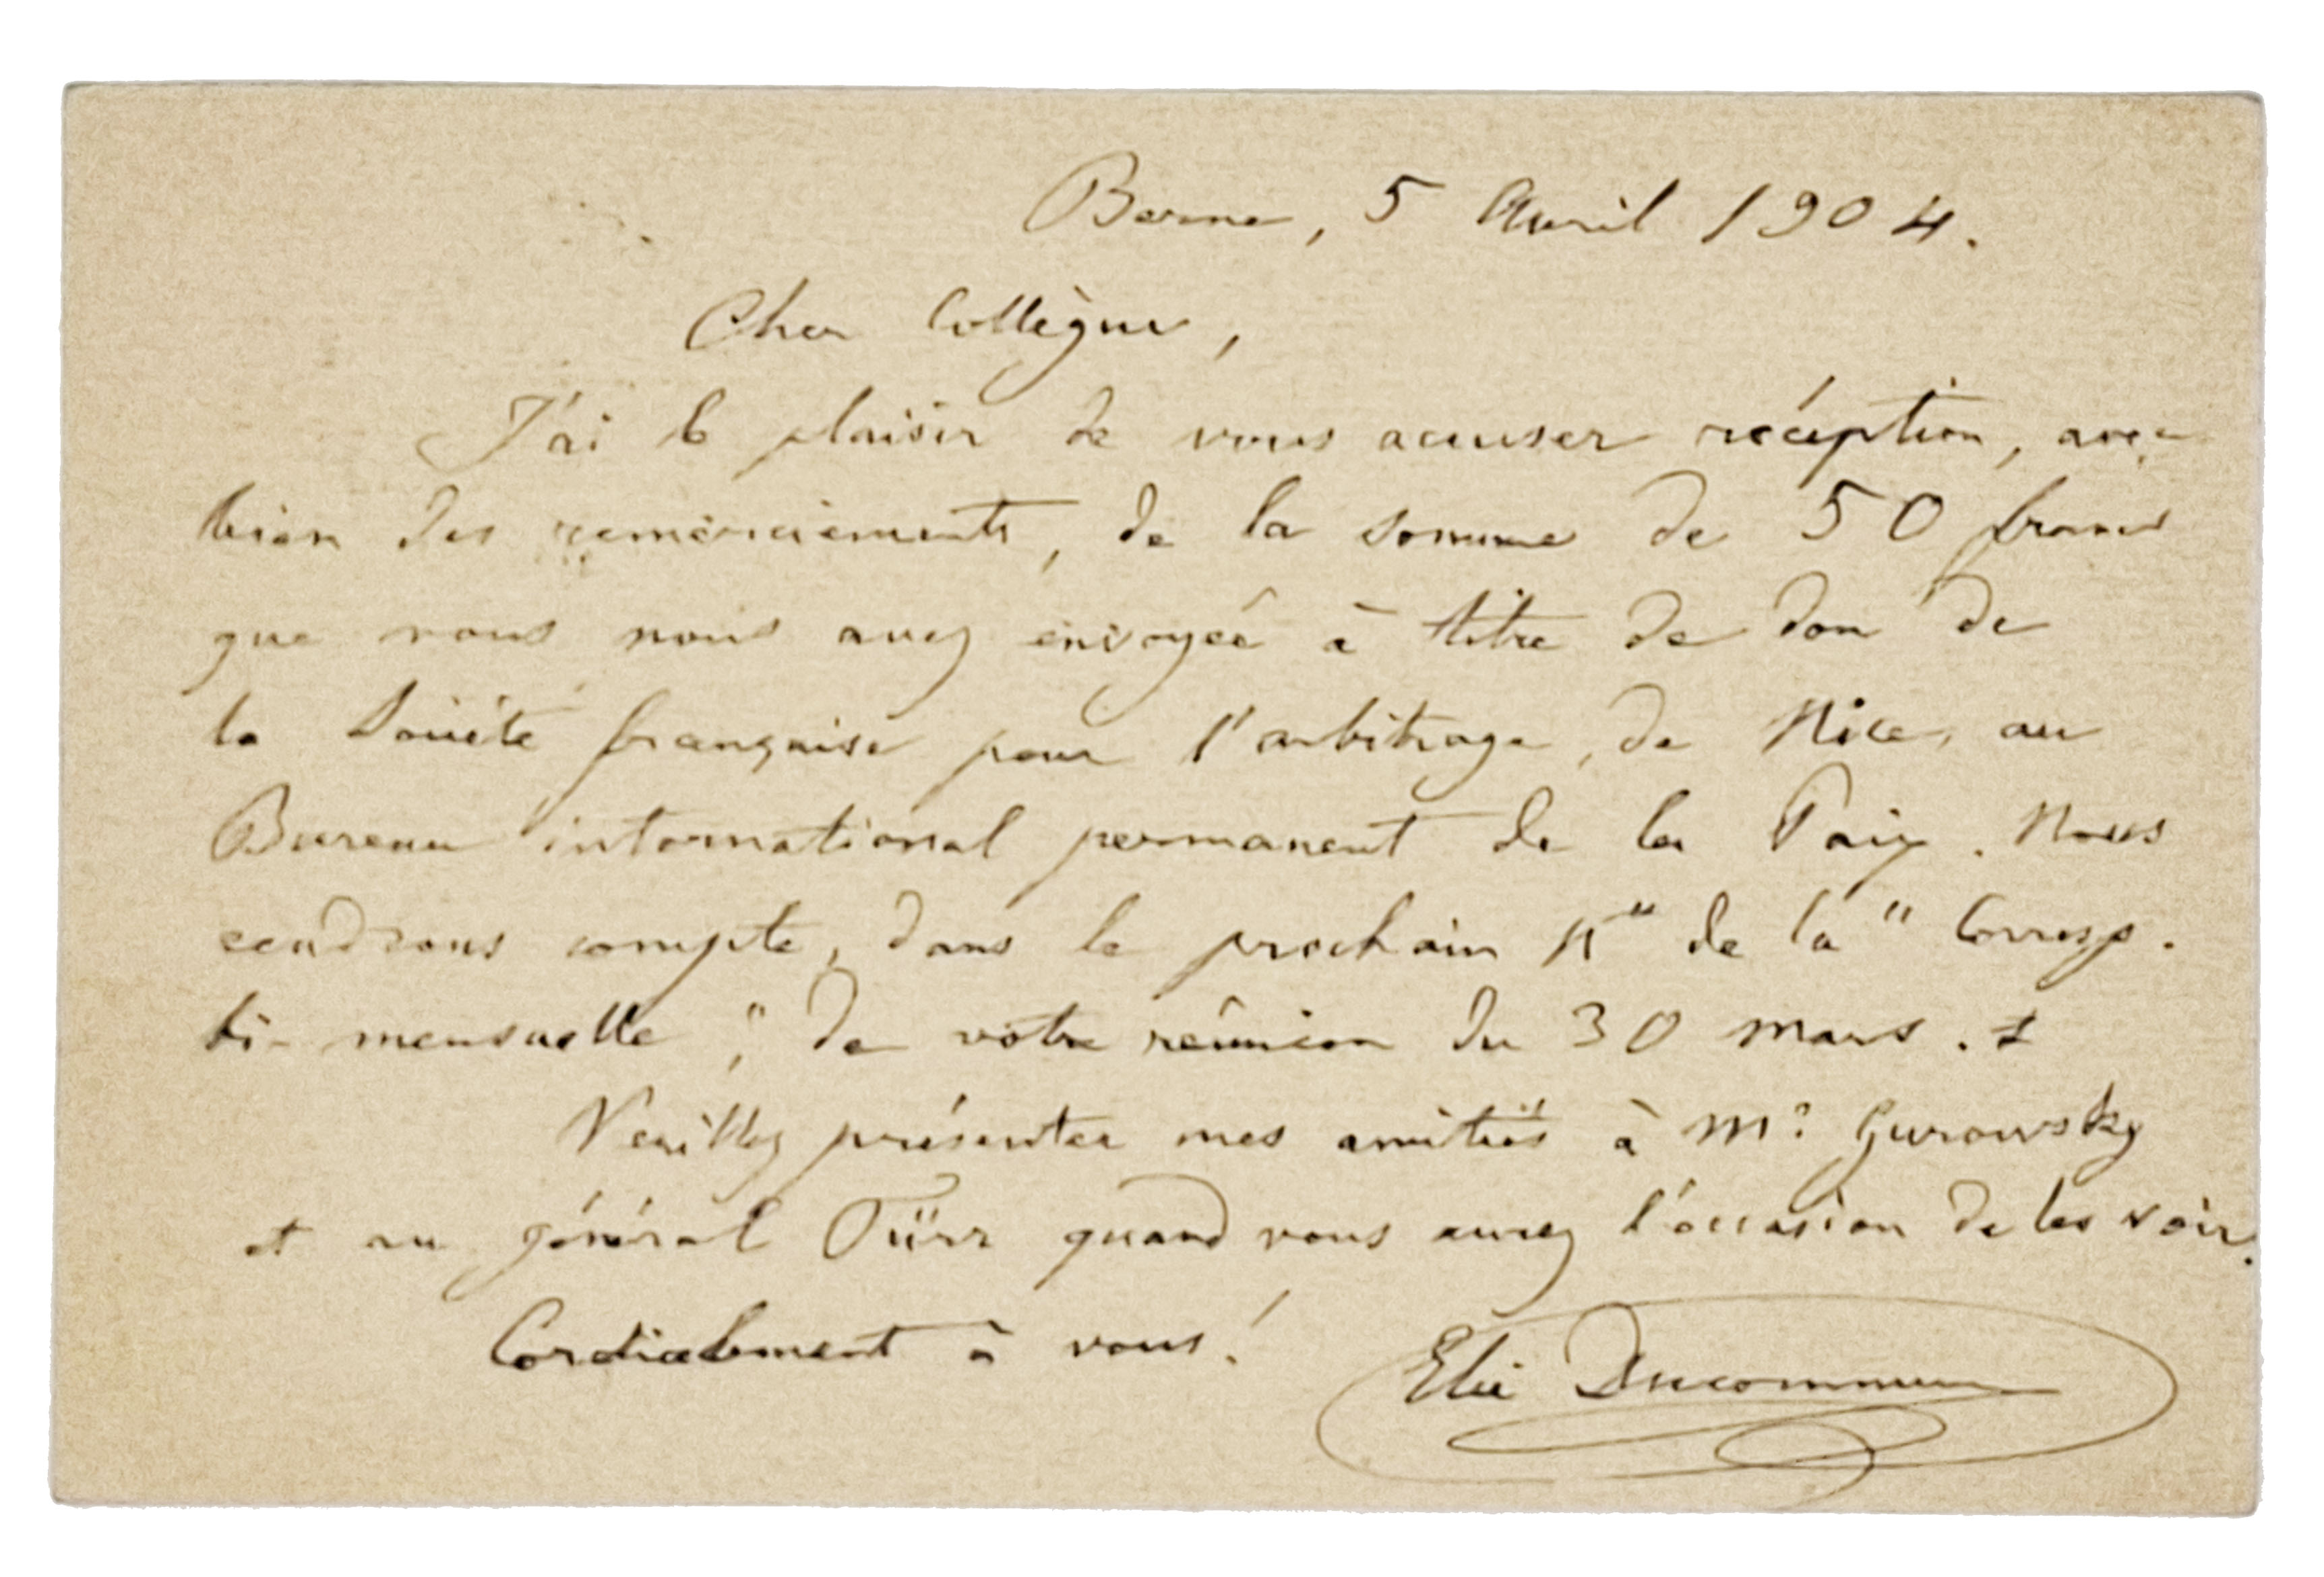 Berne, 5 Avril 1904.
Cher Collègue,
J'ai le plaisir de vous accuser réception, avec
bien des remerciements, de la somme de 50 francs
que vous nous avez envoyée à titre de don de
la Société française pour l'arbitrage, de Nice, au
Bureau international permanent de la Paix. Nous
rendrons compte, dans le prochain No de la "Corresp.
bi-mensuelle", de votre réunion du 30 mars.
Veuillez présenter mes amitiés à Mr Gurowsky
et au général Türr quand vous aurez l'occasion de les voir.
Cordialement à vous!
Elie Ducommun